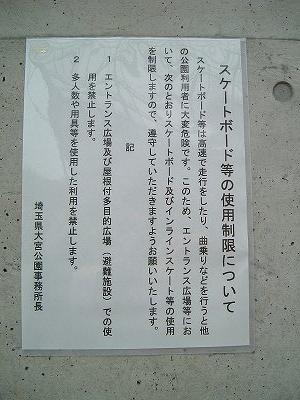 スケートボード等の使用制限について
スケートボード等は高速で走行をしたり、曲乗りなどを行うと他
の公園利用者に大変危険です。このため、エントランス広場等にお
いて、次のとおりスケートボード及びインラインスケート等の使用
を制限しますので、遵守していただきますようお願いいたします。
記
1 エントランス広場及び屋根付多目的広場(避難施設)での使
用を禁止します。
2 多人数や用具等を使用した利用を禁止します。
埼玉県大宮公園事務所長